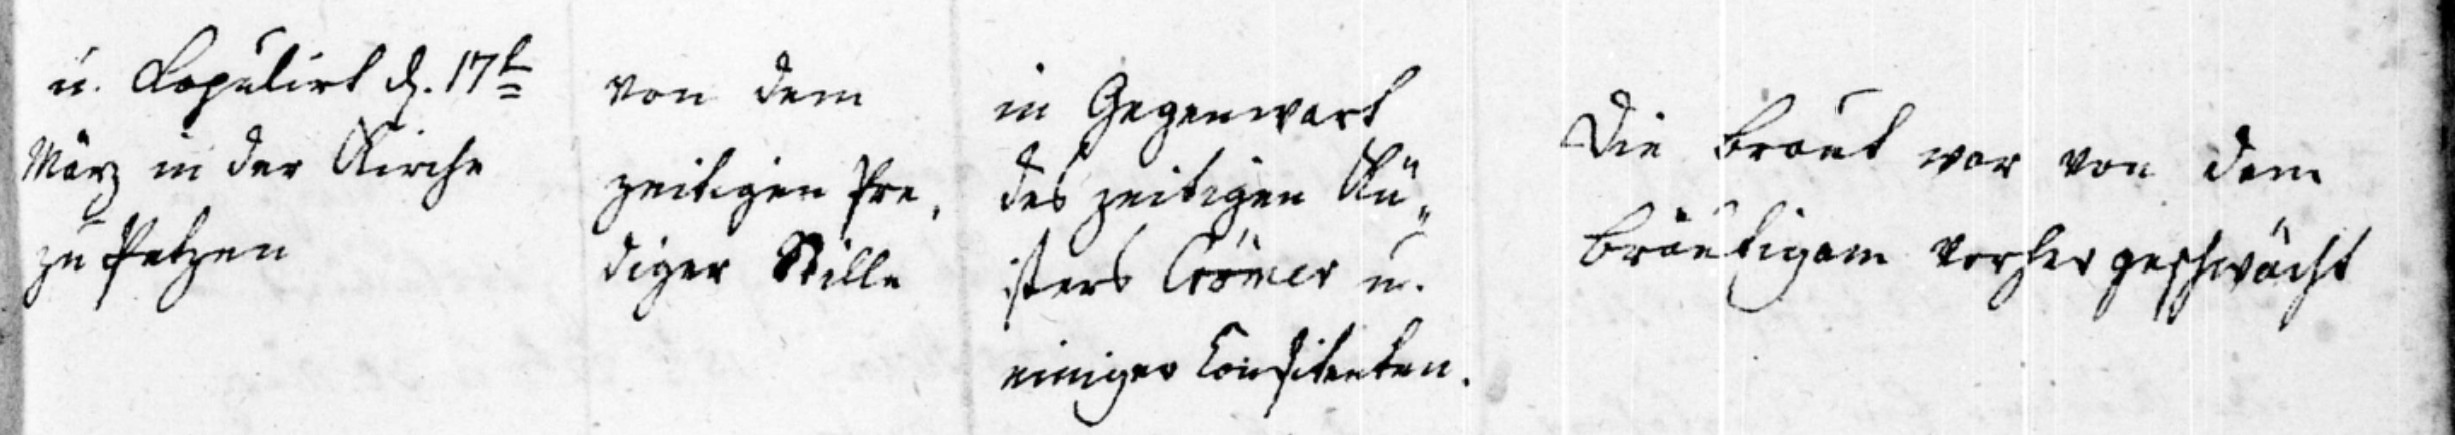 u. Copulirt d. 17t
März in der Kirche
zu Petzen
von dem
zeitigen Pre,
diger Stille
in Gegenwart
des zeitigen Kü„
sters Crömer u.
einiger Confitenten.
Die Braut war von dem
Bräutigam vorher geschwächt